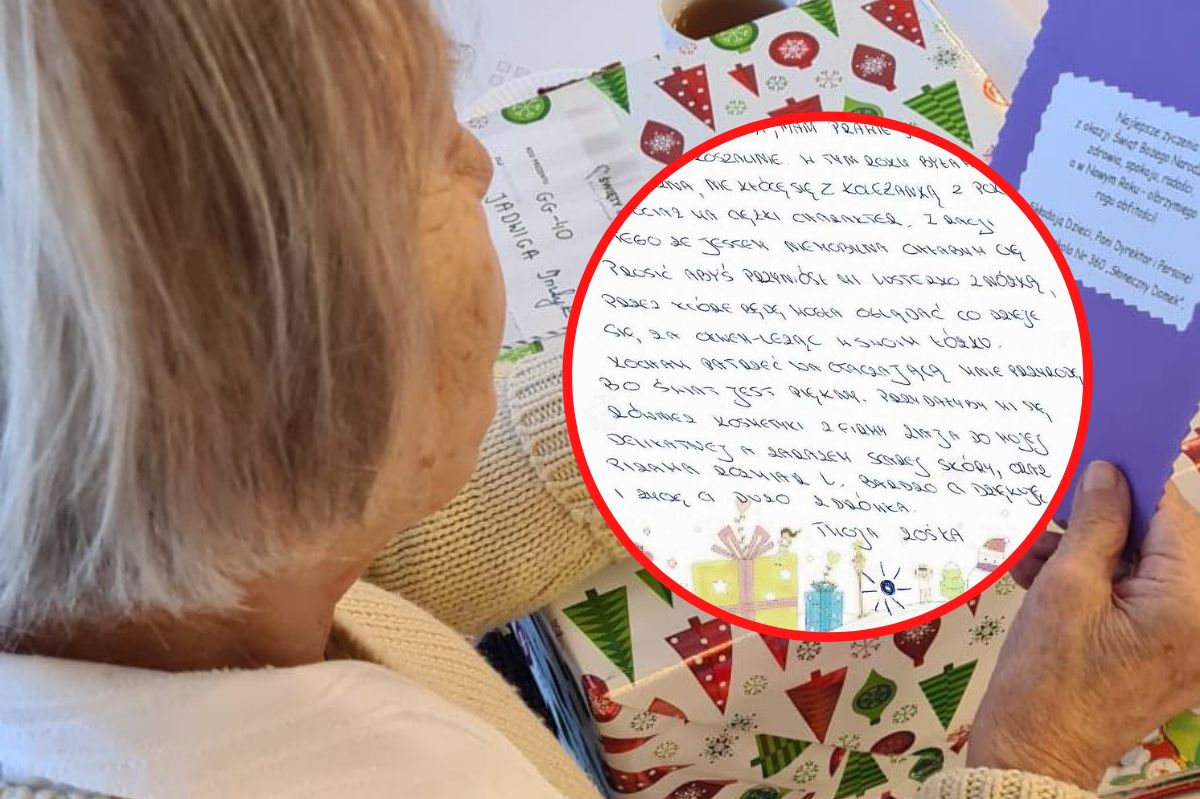 MAM PRAWIE
OSZALINIE. W TYM ROKU BYŁA
NIE KŁÓCĘ SIĘ Z KOLEŻANKĄ Z POK
MA CIĘŻKI CHARAKTER. Z RACJI
TEGO ŻE JESTEM NIEMOBILNA CHIAŁABYM CIĘ
PROSIĆ ABYŚ PRZYNIÓSŁ MI LUSTERKO Z NÓŻKĄ,
PRZEZ KTÓRE BĘDĘ MOGŁA OGLĄDAĆ CO DZIEJE
SIĘ, ZA OKNEM-LEŻĄC W SWOIM ŁÓŻKU.
KOCHAM PATRZEĆ NA OTACZAJĄCĄ MNIE PRZYRODĘ,
BO ŚWIAT JEST PIĘKNY. PRZYDAŁYBY MI SIĘ,
RÓWNIEŻ KOSMETYKI Z FIRMY ZIAJA DO MOJEJ
DELIKATNEJ A ZARAZEM STAREJ SKÓRY, ORAZ
PIŻAMA ROZMIAR L. BARDZO CI DZIĘKUJĘ
I ŻYCZĘ CI DUŻO ZDRÓWKA.
TWOJA ZOŚKA
ŚWIĘTY
GG-40
JADWIGA
Najlepsze życzenia
z okazji Świąt Bożego Narod
zdrowia, spokoju, radości
a w Nowym Roku - olbrzymiego
rogu obfitości
Składają Dzieci, Pani Dyrektor i Personel
kola Nr 360 „Słoneczny Domek”.